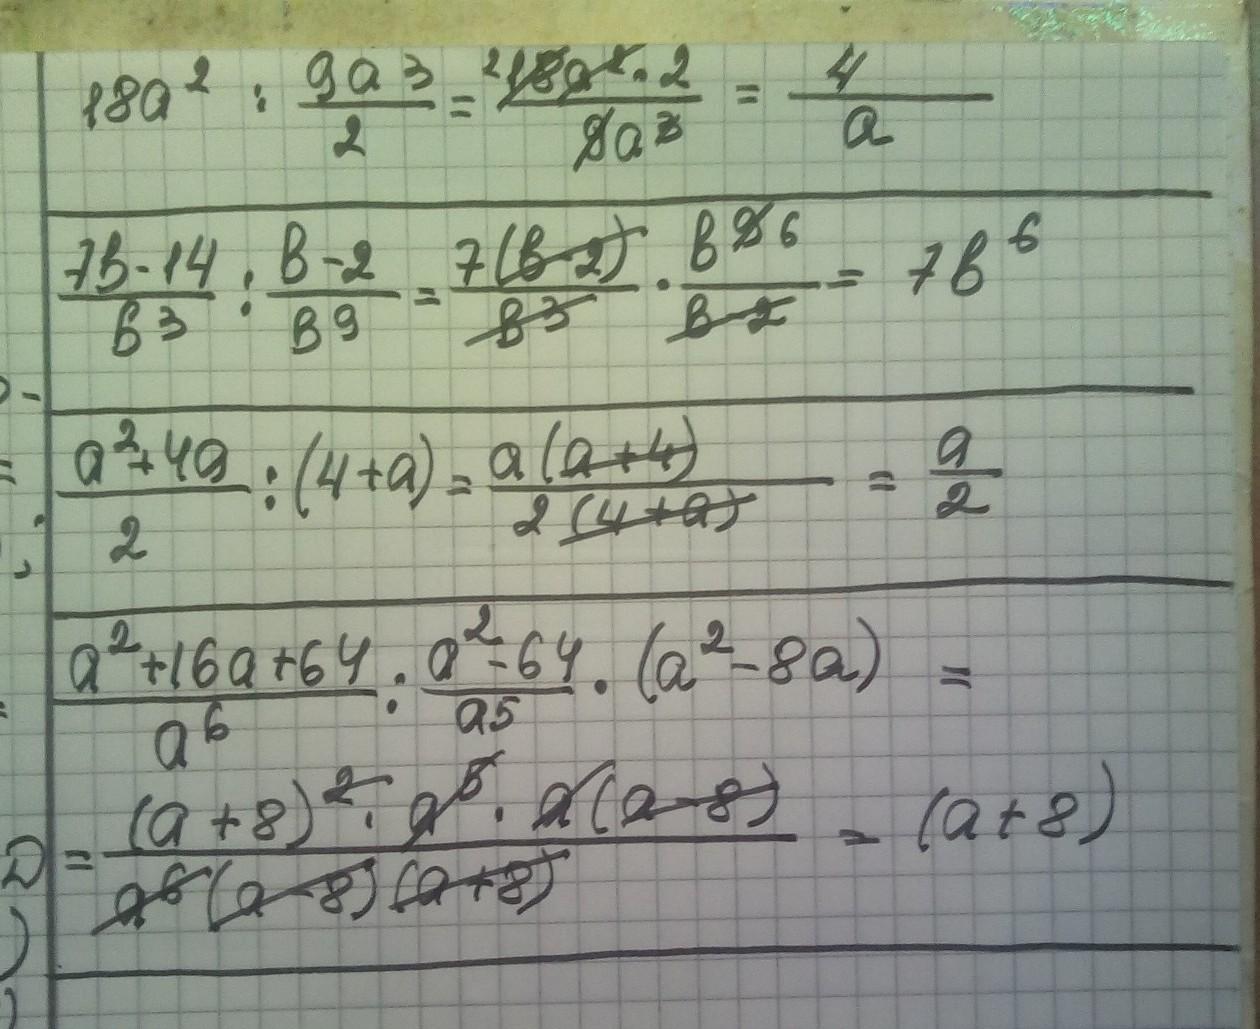 18a² : 9a³/2 = ²18a² · 2/9a³ = 4/a
7в-14/в³ : в-2/в⁹ = 7(в-2)/в³ · в⁹ ⁶/в-2 = 7в⁶
a²+4a/2 : (4+a) = a(a+4)/2(4+a) = a/2
a²+16a+64/a⁶ : a²-64/a⁵ · (a²-8a) =
= (a+8)² · a⁵ · a(a-8)/a⁶(a-8)(a+8) = (a+8)